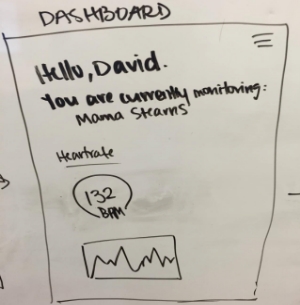 DASHBOARD
Hello, David.
You are currently monitoring:
Mama Stearns
Heartrate
132
BPM